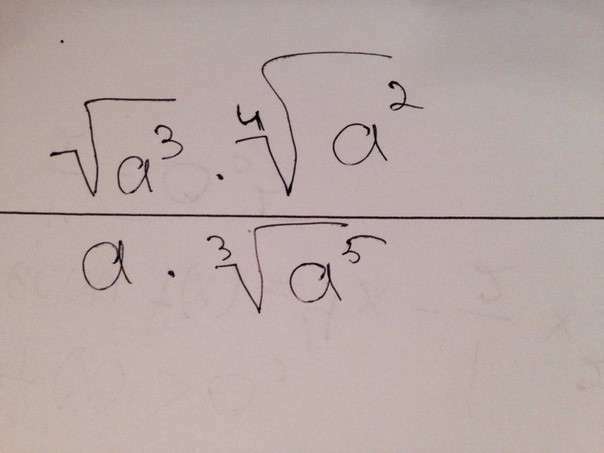 √a³ · ⁴√a²
a · ³√a⁵